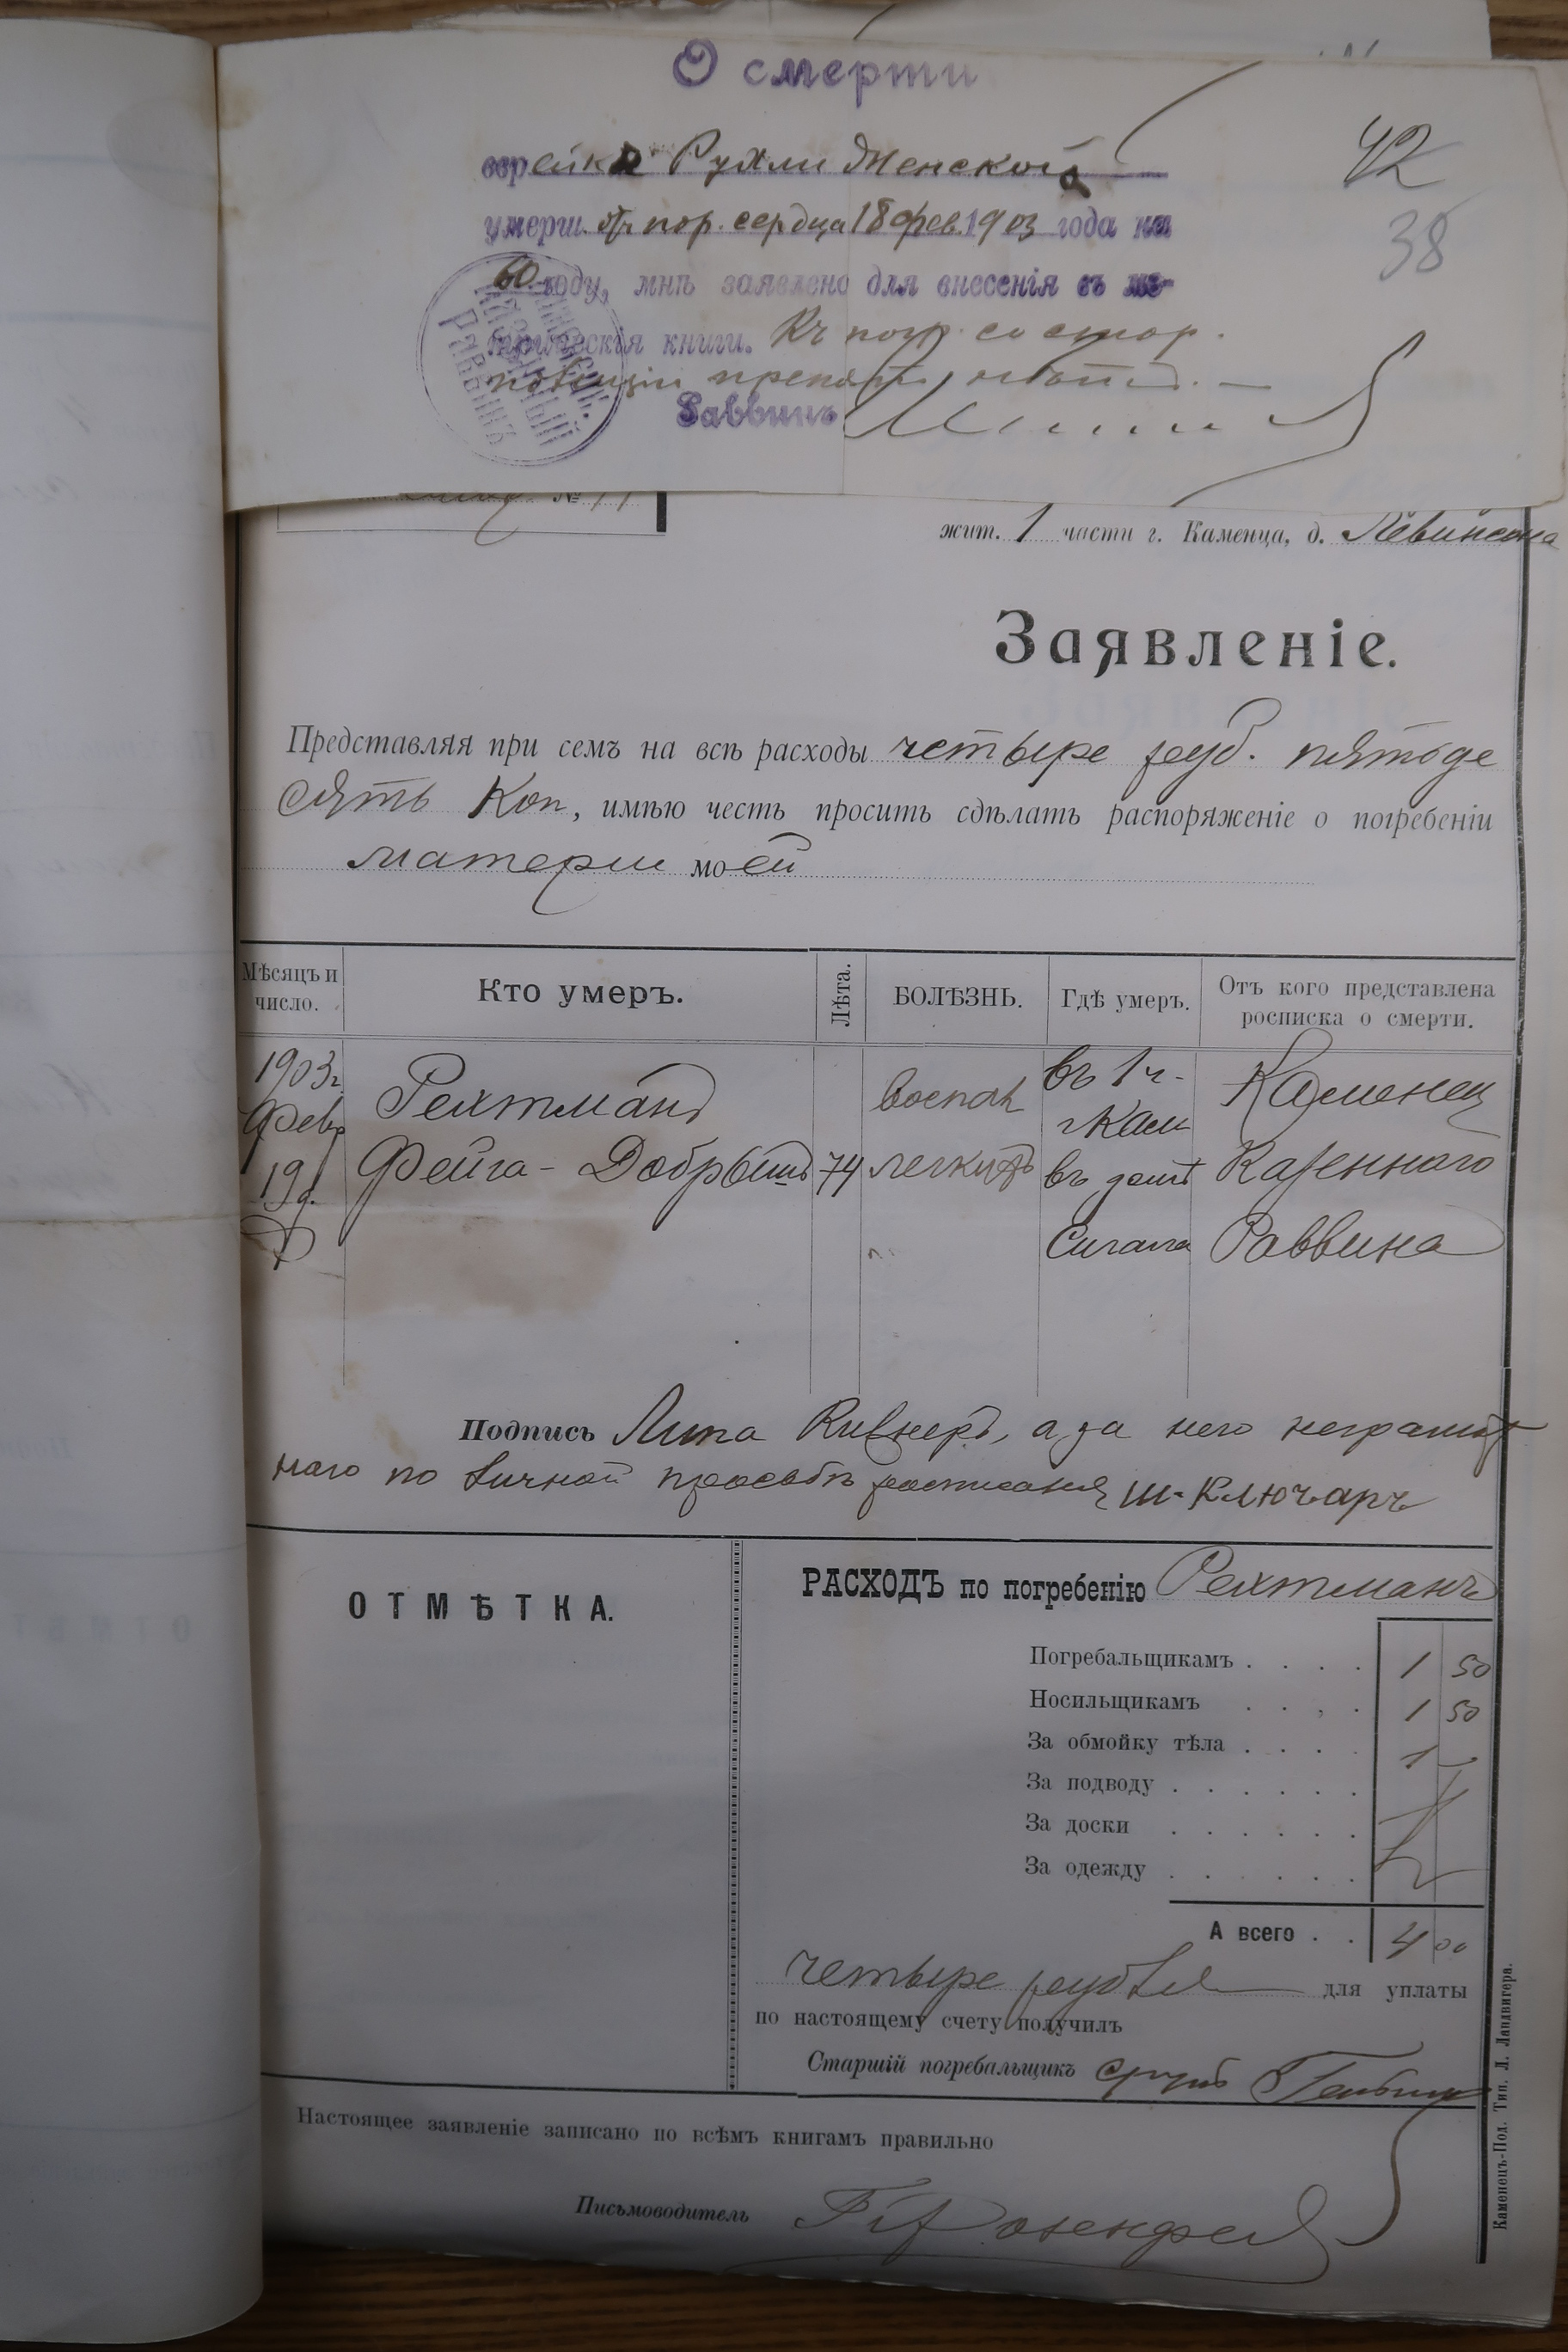 О смерти
42
еврейки Рухли Женской
38
умерш. отъ пор. сердца 18 фев. 1903 года на
60 году, мнѣ заявлено для внесенія въ ме-
трическія книги. Къ погр. со стор.
препят
Раввинъ
КАЗЕННЫЙ РАВВИНЪ
№ 11
жит. 1 части г. Каменца, д. Левинсона
Заявленіе.
Представляя при семъ на всѣ расходы четыре руб. пятьде
сять Коп, имѣю честь просить сдѣлать распоряженіе о погребеніи
матери моей
Мѣсяцъ и число. Кто умеръ. Лѣта. БОЛѢЗНЬ. Гдѣ умеръ. Отъ кого представлена росписка о смерти.
1903г. Рехтманъ воспал въ 1 ч. Каменец
Февр г Кам
19 д. Фейга - Добрышъ 74 легкихъ въ домѣ Казеннаго
Сигала Раввина
Подпись Липа Кивнеръ, а за него неграмот
наго по личной просьбѣ росписался Ш. Ключаръ
ОТМѢТКА.
РАСХОДЪ по погребенію Рехтманъ
Погребальщикамъ . . . . 1 50
Носильщикамъ . . . . 1 50
За обмойку тѣла . . . . 1 -
За подводу . . . . . .
За доски . . . . . .
За одежду . . . . . .
А всего . . 4 00
четыре рубля для уплаты
по настоящему счету получилъ
Старшій погребальщикъ
Настоящее заявленіе записано по всѣмъ книгамъ правильно
Письмоводитель Розенфел
Каменецъ-Под. Тип. Л. Ландвигера.